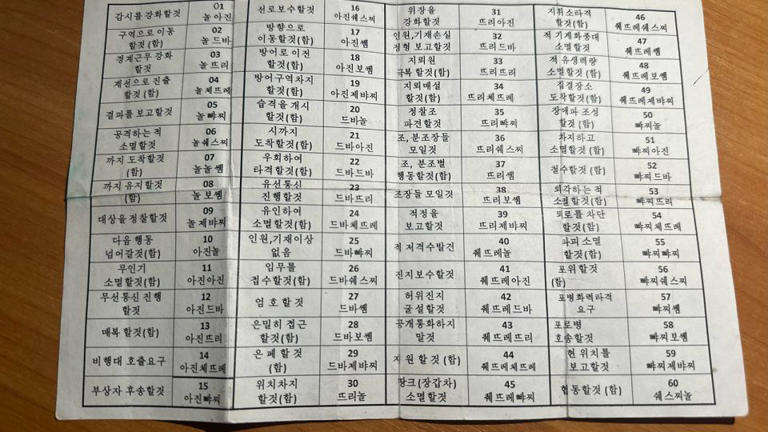 감시를 강화할것
01
놀아진
구역으로 이동
할것(함)
02
놀드바
경계근무 강화
할것
03
놀뜨리
계선으로 진출
할것(함)
04
놀체뜨레
결과를 보고할것
05
놀뺘찌
공격하는 적
소멸할것
06
놀쉐스찌
까지 도착할것
(함)
07
놀놀쎔
까지 유지할것
(함)
08
놀보쎔
대상을 정찰할것
09
놀제뱌찌
다음 행동
넘어갈것(함)
10
아진놀
무인기
소멸할것(함)
11
아진아진
무선통신 진행
할것
12
아진드바
매복 할것(함)
13
아진뜨리
비행대 호출요구
14
아진체뜨레
부상자 후송할것
15
아진뺘찌
선로보수할것
16
아진쉐스찌
방향으로
이동할것(함)
17
아진쎔
방어로 이전
할것(함)
18
아진보쎔
방어구역차지
할것(함)
19
아진제뱌찌
습격을 개시
할것(함)
20
드바놀
시까지
도착할것(함)
21
드바아진
우회하여
타격할것(함)
22
드바드바
유선통신
진행할것
23
드바뜨리
유인하여
소멸할것(함)
24
드바체뜨레
인원,기재이상
없음
25
드바뺘찌
임무를
접수할것(함)
26
드바쉐스찌
엄호 할것
27
드바쎔
은밀히 접근
할것(함)
28
드바보쎔
은폐 할것
29
드바제뱌찌
위치차지
할것(함)
30
뜨리놀
위장을
강화할것
31
뜨리아진
인원,기재손실
정형 보고할것
32
뜨리드바
지뢰원
극복 할것(함)
33
뜨리뜨리
지뢰매설
할것(함)
34
뜨리체뜨레
정찰조
파견할것
35
뜨리뺘찌
조, 분조장들
모일것
36
뜨리쉐스찌
조, 분조별
행동할것(함)
37
뜨리쎔
조장들 모일것
38
뜨리보쎔
적정을
보고할것
39
뜨리제뱌찌
적 저격수발견
40
쉐뜨레놀
진지보수할것
41
쉐뜨레아진
허위진지
굴설할것
42
쉐뜨레드바
공개통화하지
말것
43
쉐뜨레뜨리
지원 할것(함)
44
쉐뜨레체뜨레
땅크(장갑차)
소멸할것
45
쉐뜨레뺘찌
지휘소타격
할것(함)
46
쉐뜨레쉐스찌
적기계화종대
소멸할것
47
쉐뜨레쎔
적 유생력량
소멸할것(함)
48
쉐뜨레보쎔
집결장소
도착할것(함)
49
쉐뜨레제뱌찌
장애파 조성
할것(함)
50
뺘찌놀
차지하고
소멸할것(함)
51
뺘찌아진
철수할것(함)
52
뺘찌드바
퇴각하는 적
소멸할것(함)
53
뺘찌뜨리
퇴로를 차단
할것(함)
54
뺘찌체뜨레
파괴 소멸
할것(함)
55
뺘찌뺘찌
포위 할것
(함)
56
뺘찌쉐스찌
포병화력타격
요구
57
뺘찌쎔
포로병
호송할것
58
뺘찌보쎔
현 위치를
보고할것
59
뺘찌제뱌찌
협동할것(함)
60
쉐스찌놀